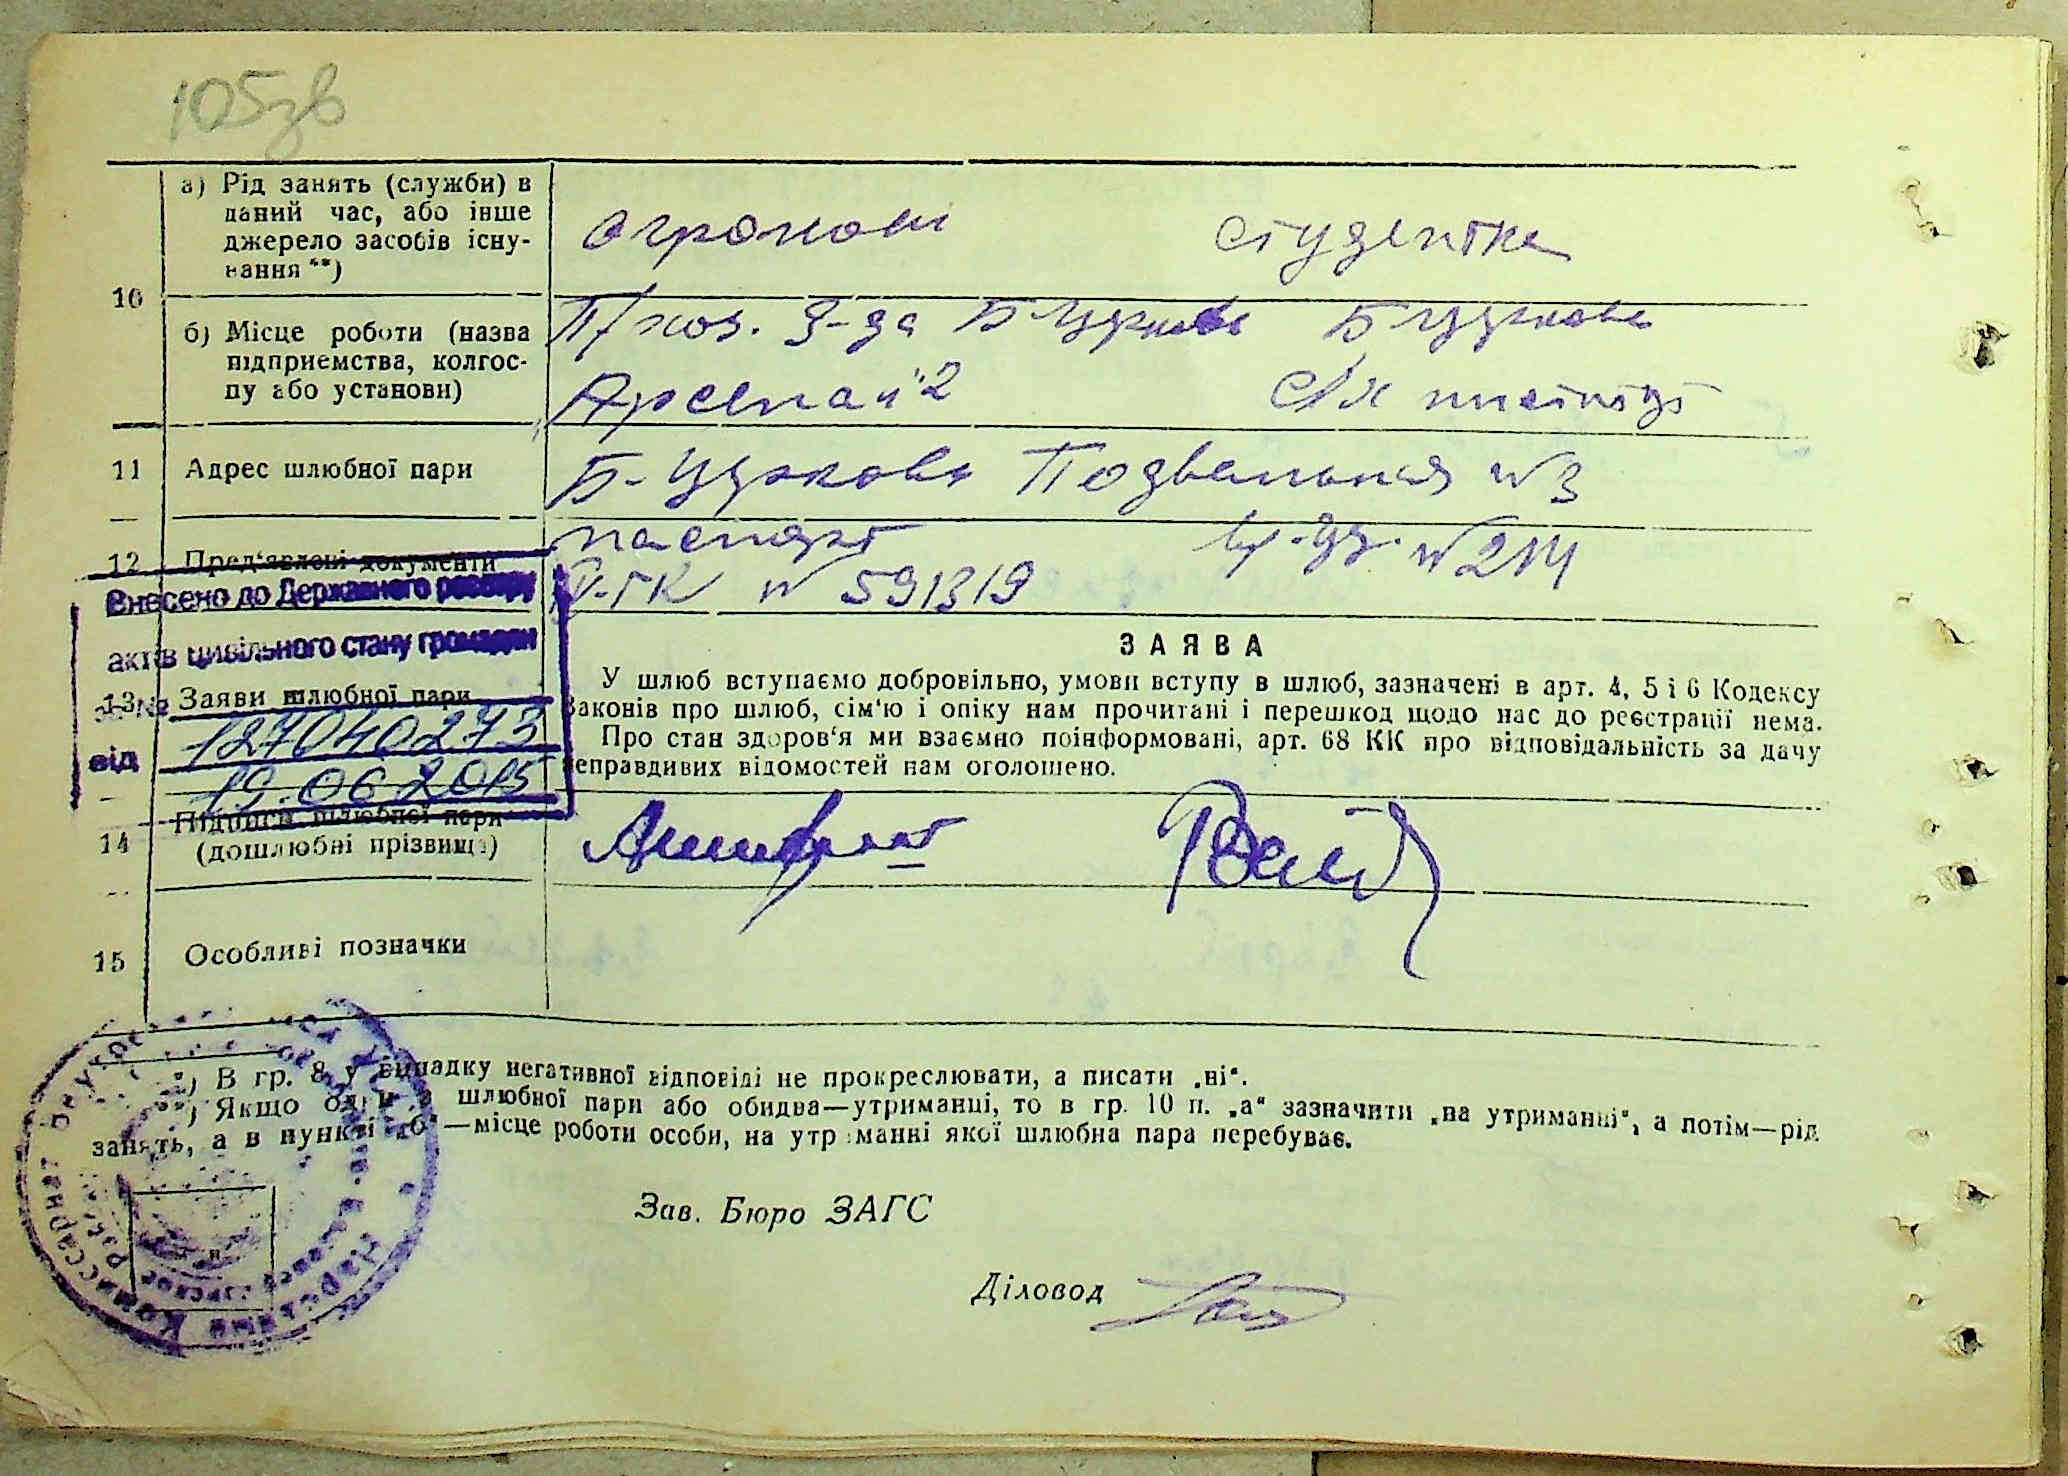 105зв
10
а) Рід занять (служби) в
даний час, або інше
джерело засобів існу-
вання **)
агроном студентка
б) Місце роботи (назва
підприємства, колгос-
пу або установи)
П/хоз. З-да Б Церковь
Арсенал 2
Б Церковь
С/х институт
11 Адрес шлюбної пари
Б-Церковь Подвальная № 3
12 Пред'явлені документи
паспорт
IV-ГК № 591319
№ 214
Внесено до Державного реєстру
актів цивільного стану громадян
за № 127040273
від 19.06.2015
13 Заяви шлюбної пари
ЗАЯВА
У шлюб вступаємо добровільно, умови вступу в шлюб, зазначені в арт. 4, 5 і 6 Кодексу
Законів про шлюб, сім'ю і опіку нам прочитані і перешкод щодо нас до реєстрації нема.
Про стан здоров'я ми взаємно поінформовані, арт. 68 КК про відповідальність за дачу
неправдивих відомостей нам оголошено.
14 Підписи шлюбної пари
(дошлюбні прізвища)
15 Особливі позначки
*) В гр. 8 у випадку негативної відповіді не прокреслювати, а писати „ні“.
**) Якщо один з шлюбної пари або обидва—утриманці, то в гр. 10 п. „а“ зазначити „на утриманні“, а потім—рід
занять, а в пункті „б“—місце роботи особи, на утриманні якої шлюбна пара перебуває.
Зав. Бюро ЗАГС
Діловод